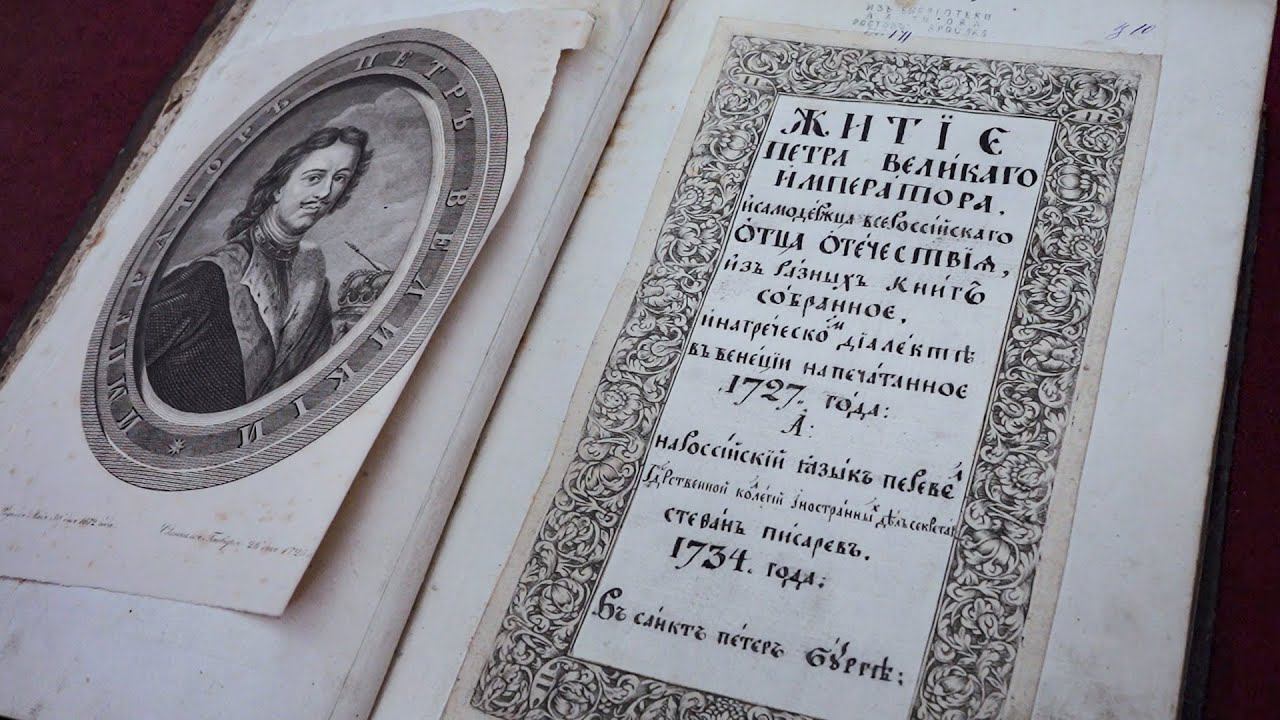 ИМПЕРАТОРЪ ПЕТРЪ ВЕЛИКІЙ
ИЗЪ БИБЛІОТЕКИ
№ 10
ЖИТЇЄ
ПЕТРА ВЕЛИ́КАГО
ИМПЕРА́ТОРА.
И҆САМОДЕ́РЖЦА ВСЕРОССІ́ЙСКАГО
ОТЦА̀ ОТЕ́ЧЕСТВІЯ,
И҆ЗЪ РА́ЗНЫХЪ КНИ́ГЪ
СО́БРАННОЕ.
И҆НАГРЕ́ЧЕСКОМ ДІАЛЕ́КТѢ
ВЪВЕНЕ́ЦІИ НАПЕЧА́ТАННОЕ
1727. ГО́ДА:
А҆:
НАРОССІ́ЙСКІЙ ꙖЗЫ́КЪ ПЕРЕВЕ́Л
ГДРСТВЕННОЙ КОЛЕ́ГІИ ІНОСТРА́ННЫХ ДѢЛЪ СЕКРЕТА
СТЕѲА́НЪ ПИ́САРЕВЪ.
1734. ГО́ДА:
ВЪ СА́НКТЪ ПЕ́ТЕРЪ БУ́РГѢ: